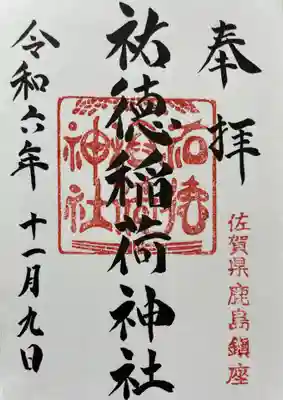 奉拝
佐賀県鹿島鎮座
祐徳稲荷神社
祐徳稲荷神社
令和六年 十一月九日